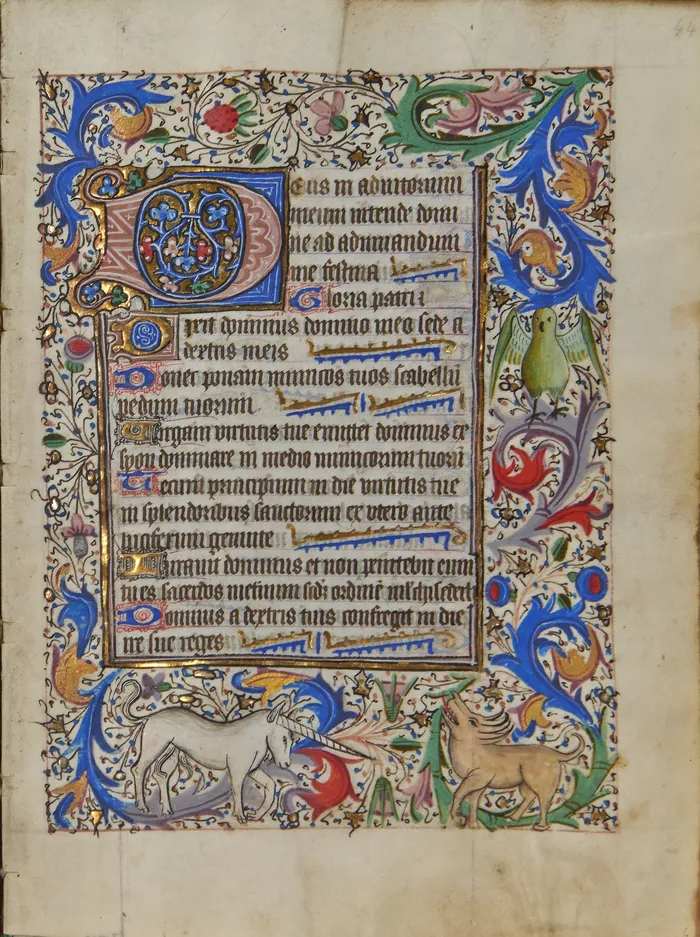 44
Deus in adiutorium
meum intende domi
ne ad adiuuandum
me festina
Gloria patri
Dixit dominus domino meo sede a
dextris meis
Donec ponam inimicos tuos scabellū
pedum tuorum
Uirgam virtutis tue emittet dominus ex
syon dominare in medio inimicorum tuorū
Tecum principium in die virtutis tue
in splendoribus sanctorum ex vtero ante
luciferum genui te
Iurauit dominus et non penitebit eum
tu es sacerdos in eternum ordinē melchisedech
Dominus a dextris tuis confregit in die
ire sue reges